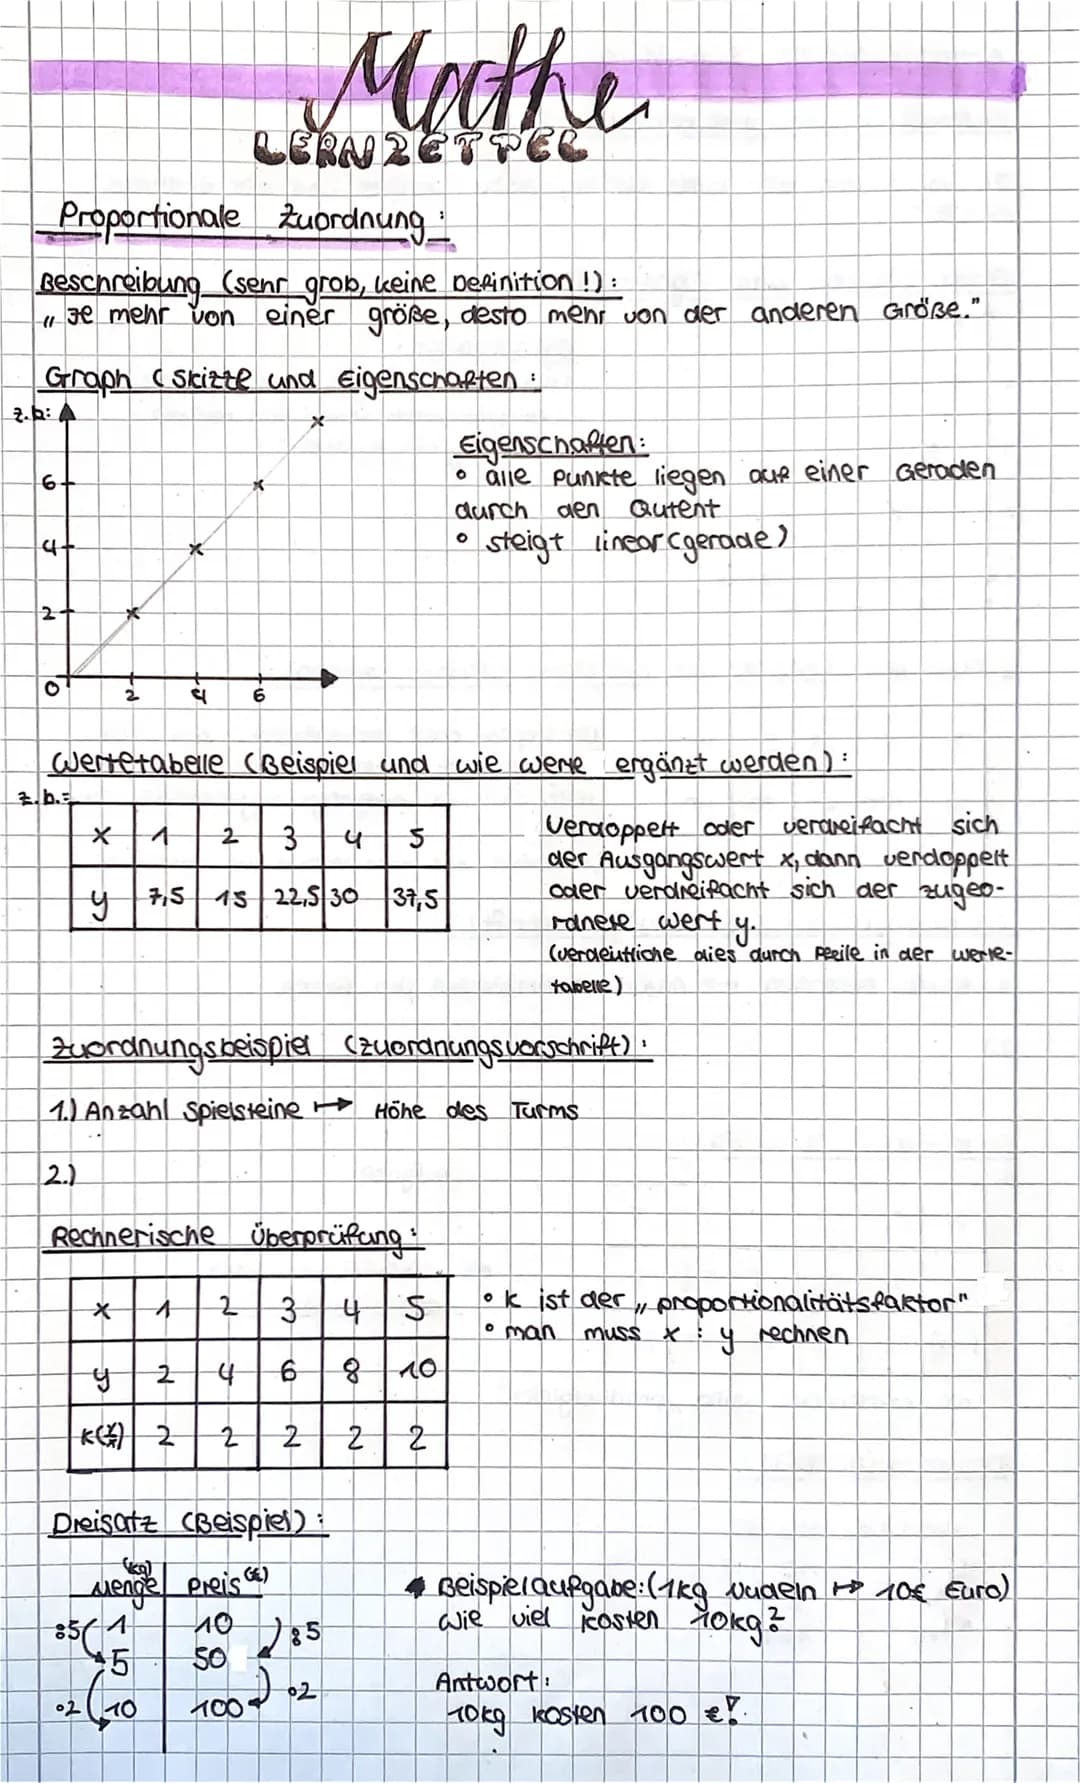 Mathe
LERNZETTEL
Proportionale Zuordnung:
Beschreibung (sehr grob, keine Definition!):
„Je mehr von einer größe, desto mehr von der anderen Größe."
Graph (Skizze und Eigenschaften:
z.b:
6
4
2
0
2 4 6
Eigenschaften:
• alle Punkte liegen auf einer Geraden
durch den Qutent
• steigt linear (gerade)
Wertetabelle (Beispiel und wie werte ergänzt werden):
z.b.:
x 1 2 3 4 5
y 7,5 15 22,5 30 37,5
Verdoppelt oder verdreifacht sich
der Ausgangswert x, dann verdoppelt
oder verdreifacht sich der zugeo-
rdnete wert y.
(verdeutliche dies durch Pfeile in der werte-
tabelle)
Zuordnungsbeispiel (Zuordnungsvorschrift):
1.) Anzahl Spielsteine ↦ Höhe des Turms
2.)
Rechnerische Überprüfung:
x 1 2 3 4 5
y 2 4 6 8 10
K(y/x) 2 2 2 2 2
• K ist der „proportionalitätsfaktor"
• man muss x : y rechnen
Dreisatz (Beispiel):
Menge (kg) Preis (€)
:5 1 10 :5
5 50
·2 10 100 ·2
Beispielaufgabe: (1kg Nudeln ↦ 10€ Euro)
Wie viel kosten 10kg?
Antwort:
10kg kosten 100 €!